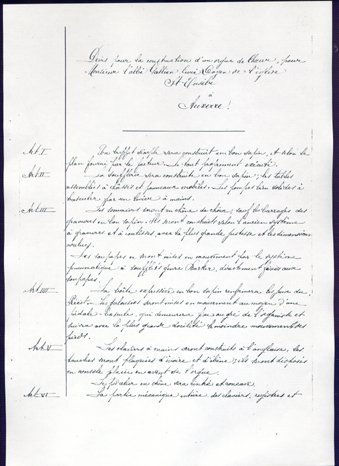 Devis pour la construction d'un orgue de Chœur, pour
Monsieur l'abbé Gallien curé Doyen de l'église
St Eusèbe
à
Auxerre!
Art. I Un buffet simple sera construit en bon sapin, et selon le
plan fourni par le facteur le tout proprement
Art. II La soufflerie sera construite en bon sapin; les tables
assemblées à châssis et panneaux Les pompes bien solides
un levier à mains.
Art. III Le sommier sera en chêne de choix, sauf les barrages des
gravures en bon sapin. Ils seront construits selon l'ancien système
à gravures et à avec la plus grande justesse et les dimensions
voulues.
Les soupapes en seront mises en mouvement par le système
pneumatique à soufflets genre Barker, directement
soupapes.
Art. IIII La boîte expressive en bon sapin renfermera les jeux du
Récit. Les jalousies seront mises en mouvement au moyen d'une
pédale à bascule, qui demeurera de l'organiste et
suivra avec la plus grande docilité les moindres mouvements des
pieds.
Art. V Les claviers à mains seront construits à l'anglaise, les
touches seront plaquées d'ivoire et d'ébène; ils seront disposés
en console placée en avant de l'orgue.
Le pédalier en chêne sera
Art. VI La partie mécanique entière des claviers, registres et